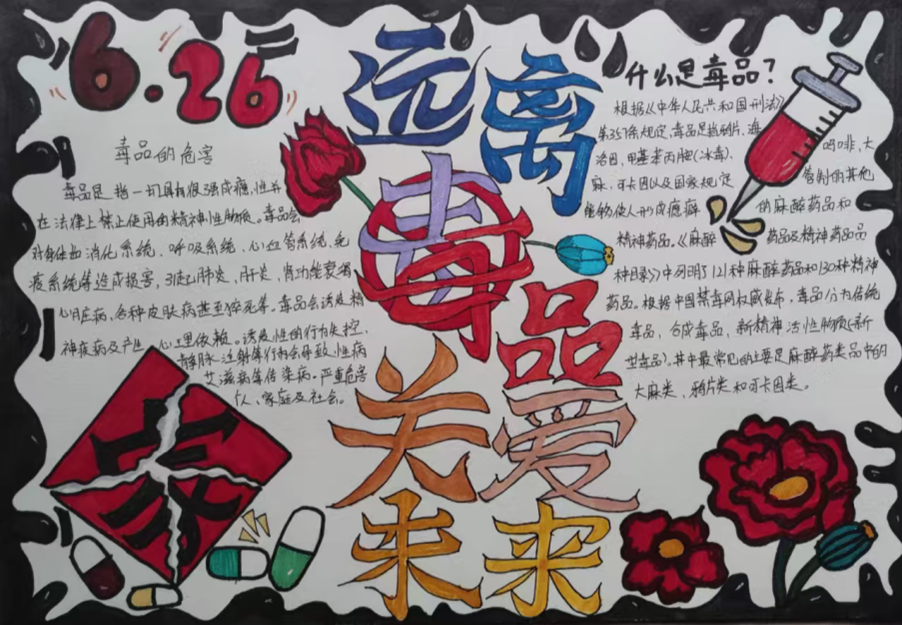 6.26
远离
毒品
关爱
未来
毒品的危害
毒品是指一切具有很强成瘾性并
在法律上禁止使用的精神性物质。毒品会
对身体的消化系统、呼吸系统、心血管系统、免
疫系统等造成损害,引起肺炎、肝炎、肾功能衰竭
心内症病、各种皮肤病甚至猝死等。毒品会诱发精
神疾病及产生心理依赖。诱发性的行为失控,
静脉注射等行为会导致性病
艾滋病等传染病。严重危害
个人、家庭及社会。
家
什么是毒品?
根据《中华人民共和国刑法》
第357条规定,毒品是指鸦片、海
洛因、甲基苯丙胺(冰毒)、吗啡、大
麻、可卡因以及国家规定管制的其他
能够使人形成瘾癖的麻醉药品和
精神药品。《麻醉药品及精神药品品
种目录》中列明了121种麻醉药品和130种精神
药品。根据中国禁毒网权威发布,毒品分为传统
毒品,合成毒品,新精神活性物质(新
型毒品)。其中最常见的主要是麻醉药类品中的
大麻类、鸦片类和可卡因类。